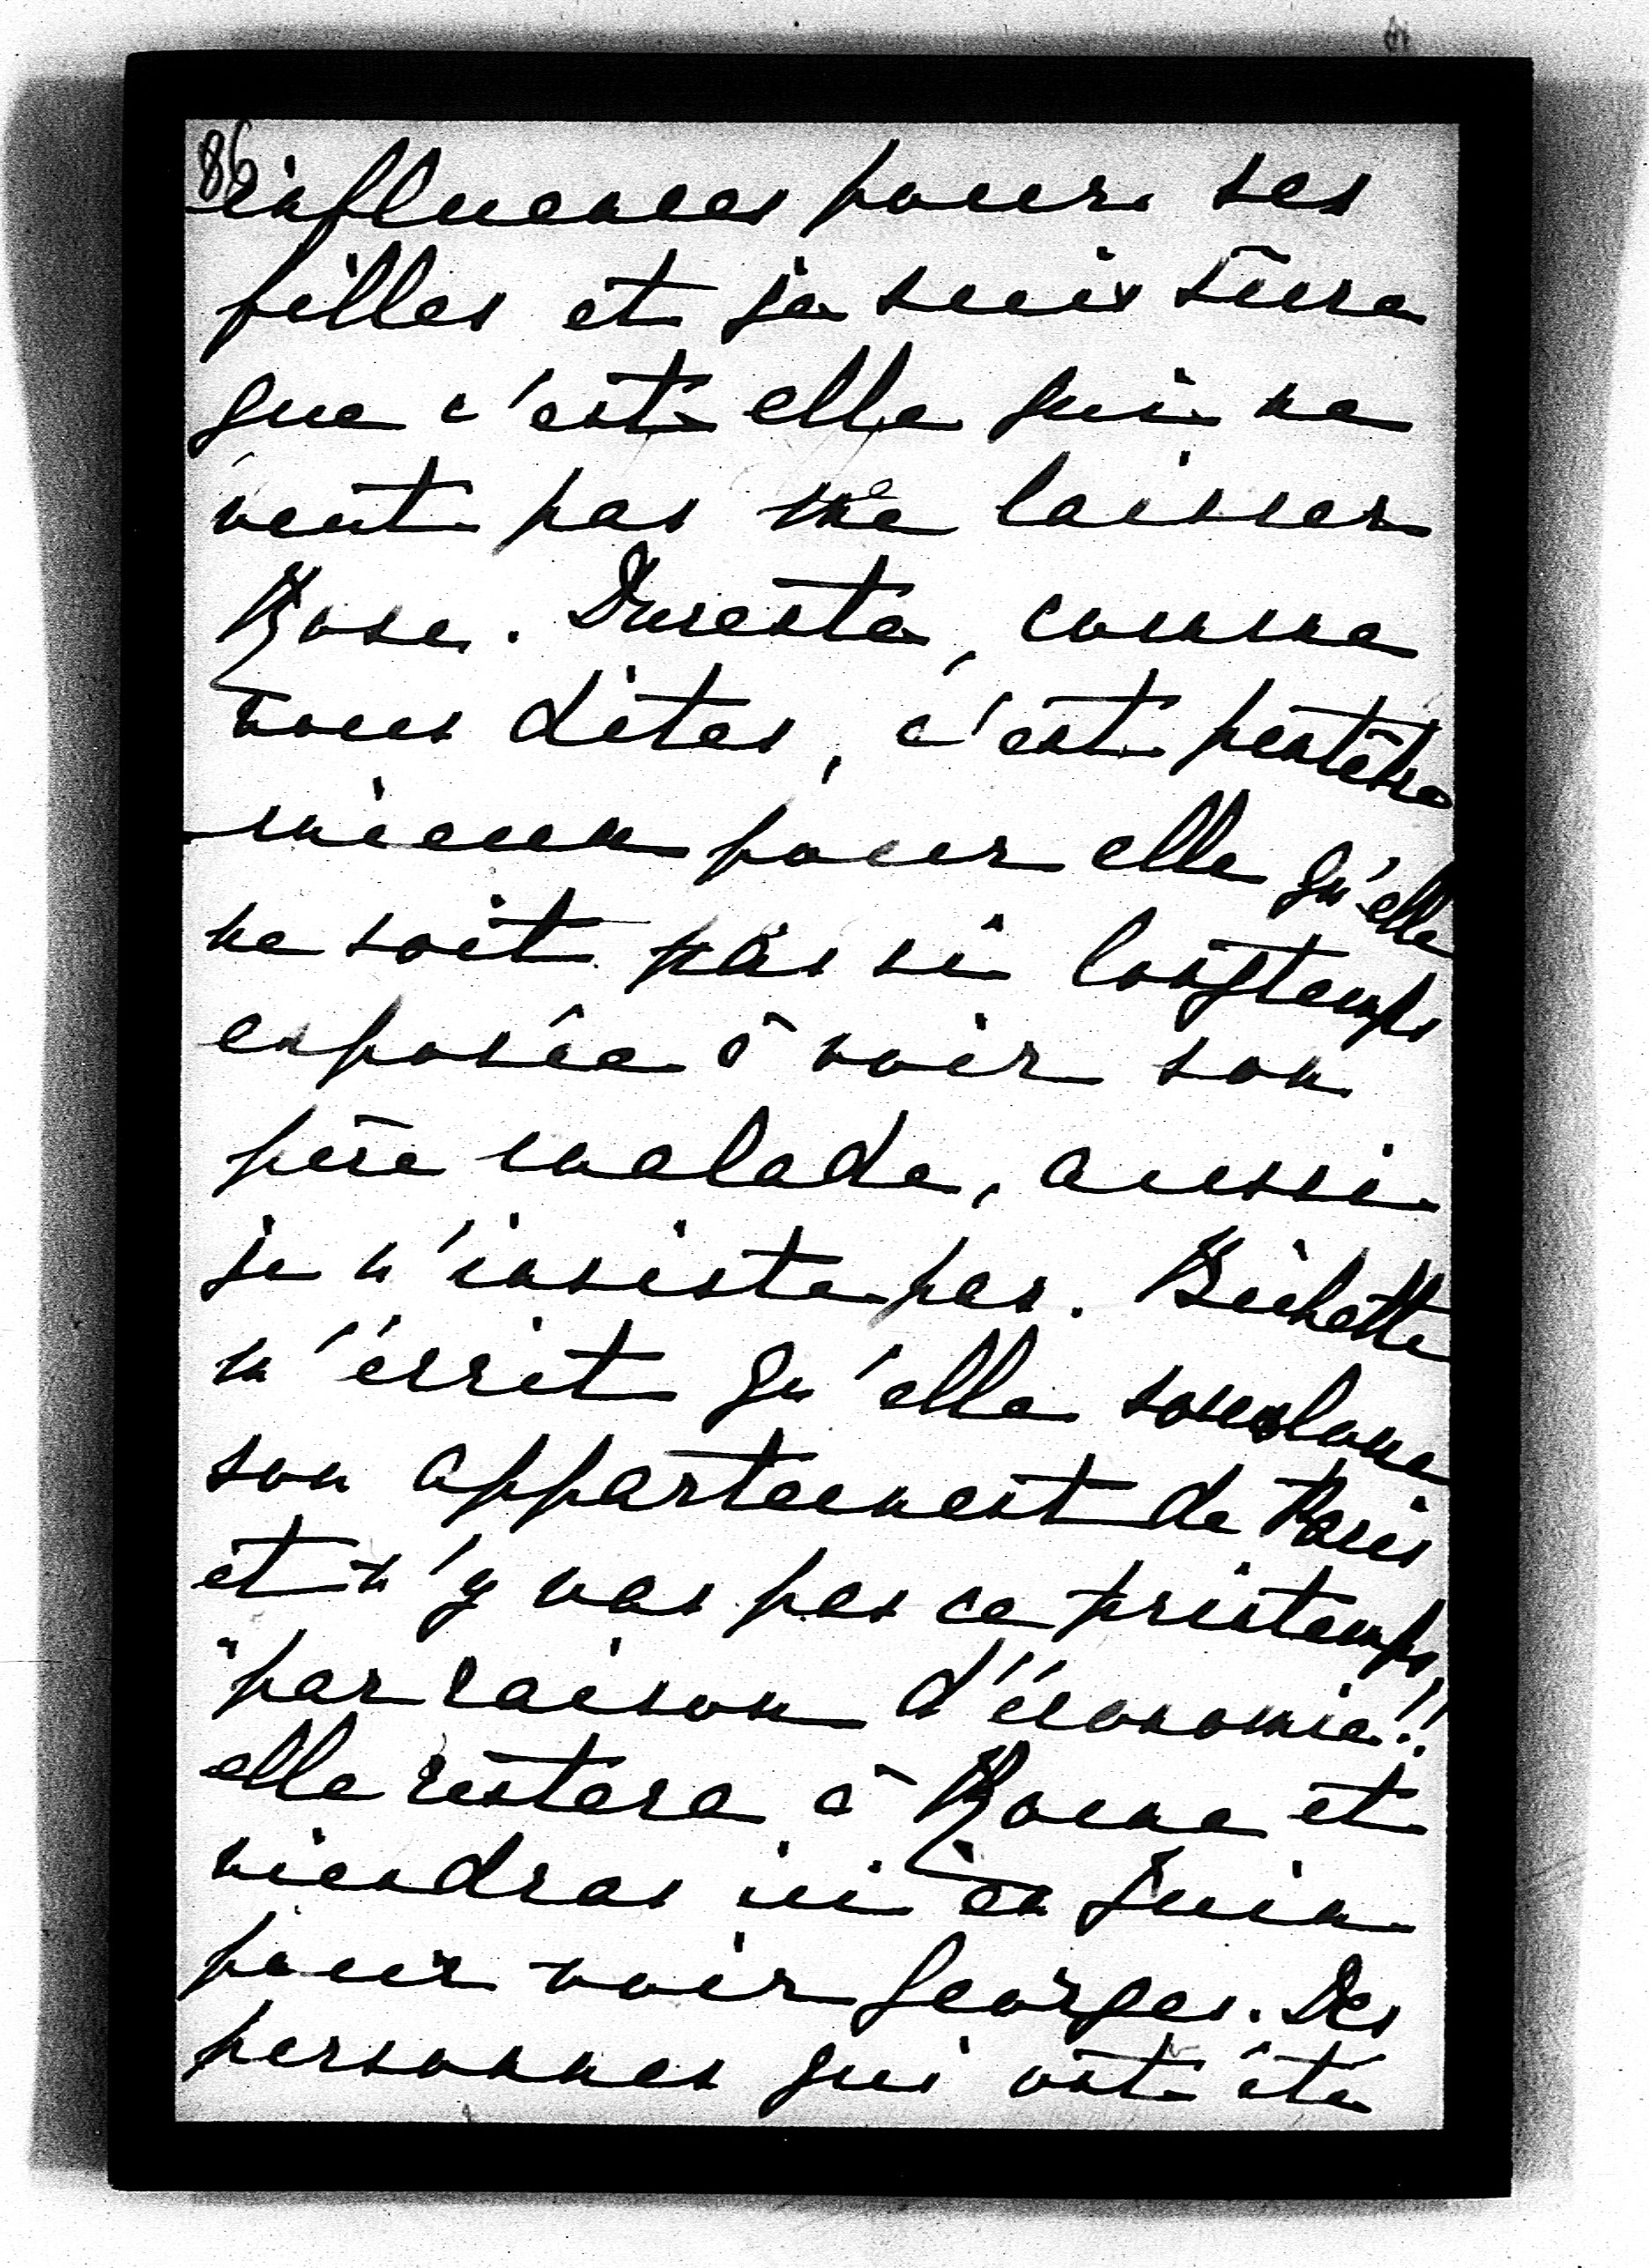 86
influences pour ses
filles et je suis sûre
que c'est elle qui ne
veut pas me laisser
Rose. Dureste, comme
vous dites, c'est peutêtre
mieux pour elle qu'elle
ne soit pas si longtemps
exposée à voir son
père malade, aussi
je n'insiste pas. Bichette
m'écrit qu'elle sousloue
son appartement de Paris
et n'y vas pas ce printemps,
"par raison d'économie"!!
elle restera à Rome et
viendras ici en Juin
pour voir Georges. Des
personnes qui ont été